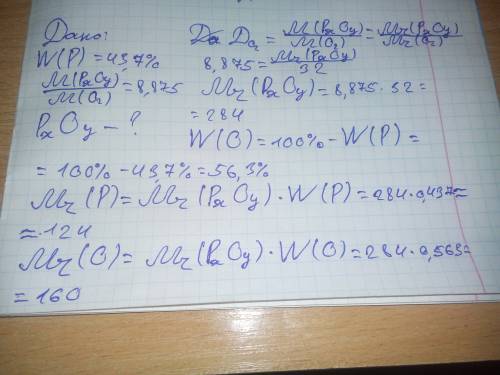 Дано:
W(P) = 43,7%
M(PxOy)/M(O2) = 8,875
PxOy - ?
Da DO2 = M(PxOy)/M(O2) = Mr(PxOy)/Mr(O2)
8,875 = Mr(PxOy)/32
Mr(PxOy) = 8,875 · 32 =
= 284
W(O) = 100% - W(P) =
= 100% - 43,7% = 56,3%
Mr(P) = Mr(PxOy) · W(P) = 284 · 0,437 ≈
≈ 124
Mr(O) = Mr(PxOy) · W(O) = 284 · 0,563 =
= 160